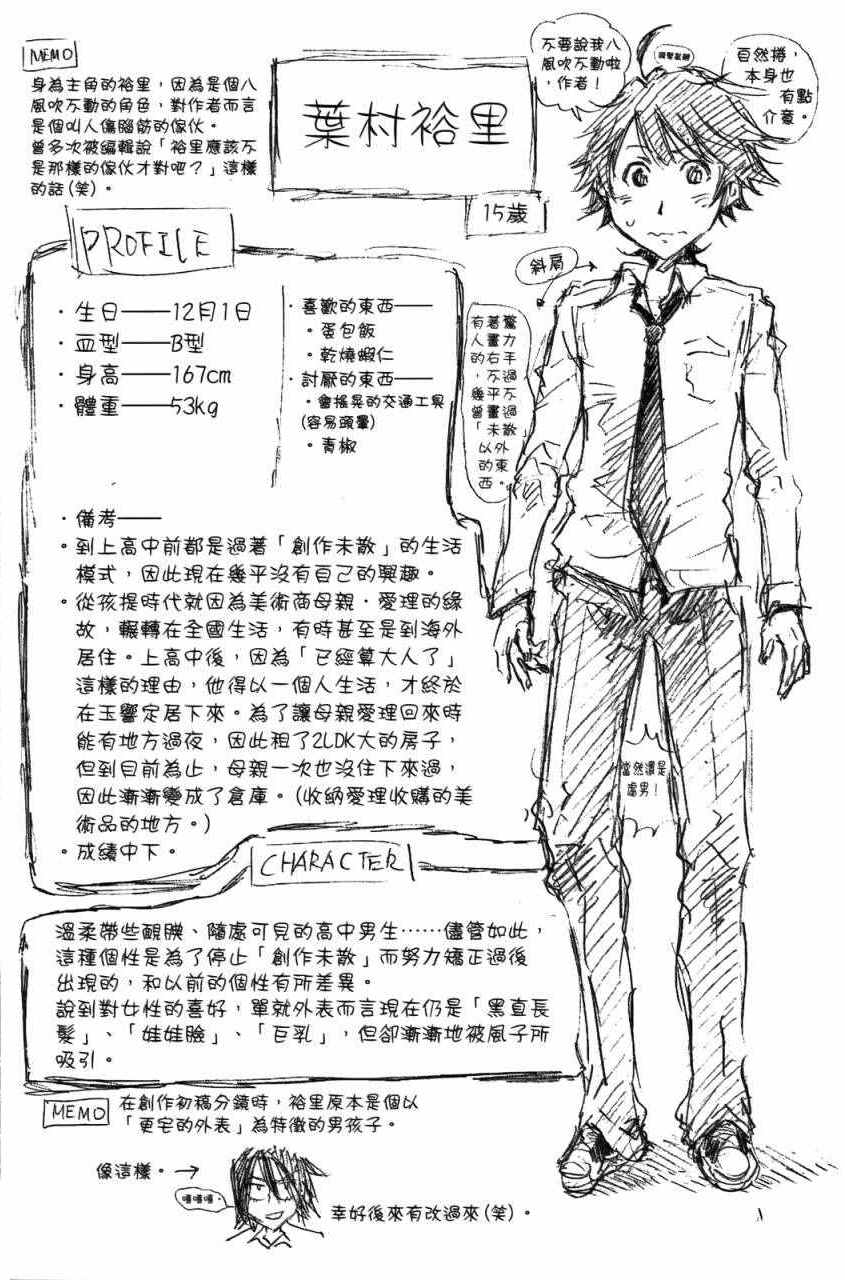 MEMO
身為主角的裕里，因為是個八
風吹不動的角色，對作者而言
是個叫人傷腦筋的傢伙。
曾多次被編輯說「裕里應該不
是那樣的傢伙才對吧？」這樣
的話(笑)。
葉村裕里
15歲
不要說我八
風吹不動啦，
作者！
自然捲，
本身也
有點
介意。
斜肩
有著驚
人畫力
的右手
，不過
幾乎不
曾畫過
「未散」
以外
的東
西。
PROFILE
・生日——12月1日
・血型——B型
・身高——167cm
・體重——53kg
・喜歡的東西——
。蛋包飯
。乾燒蝦仁
・討厭的東西——
・會搖晃的交通工具
(容易頭暈)
。青椒
・備考——
。到上高中前都是過著「創作未散」的生活
模式，因此現在幾乎沒有自己的興趣。
。從孩提時代就因為美術商母親・愛理的緣
故，輾轉在全國生活，有時甚至是到海外
居住。上高中後，因為「已經算大人了」
這樣的理由，他得以一個人生活，才終於
在玉響定居下來。為了讓母親愛理回來時
能有地方過夜，因此租了2LDK大的房子，
但到目前為止，母親一次也沒住下來過，
因此漸漸變成了倉庫。(收納愛理收購的美
術品的地方。)
。成績中下。
當然還是
處男！
CHARACTER
溫柔帶些靦腆、隨處可見的高中男生……儘管如此，
這種個性是為了停止「創作未散」而努力矯正過後
出現的，和以前的個性有所差異。
說到對女性的喜好，單就外表而言現在仍是「黑直長
髮」、「娃娃臉」、「巨乳」，但卻漸漸地被風子所
吸引。
MEMO
在創作初稿分鏡時，裕里原本是個以
「更宅的外表」為特徵的男孩子。
像這樣。→
嘻嘻嘻。
幸好後來有改過來(笑)。